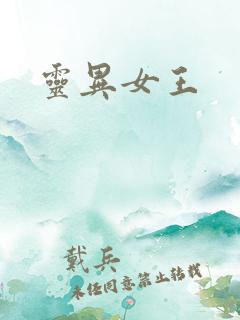 靈異女王
戴兵
未经同意禁止转载